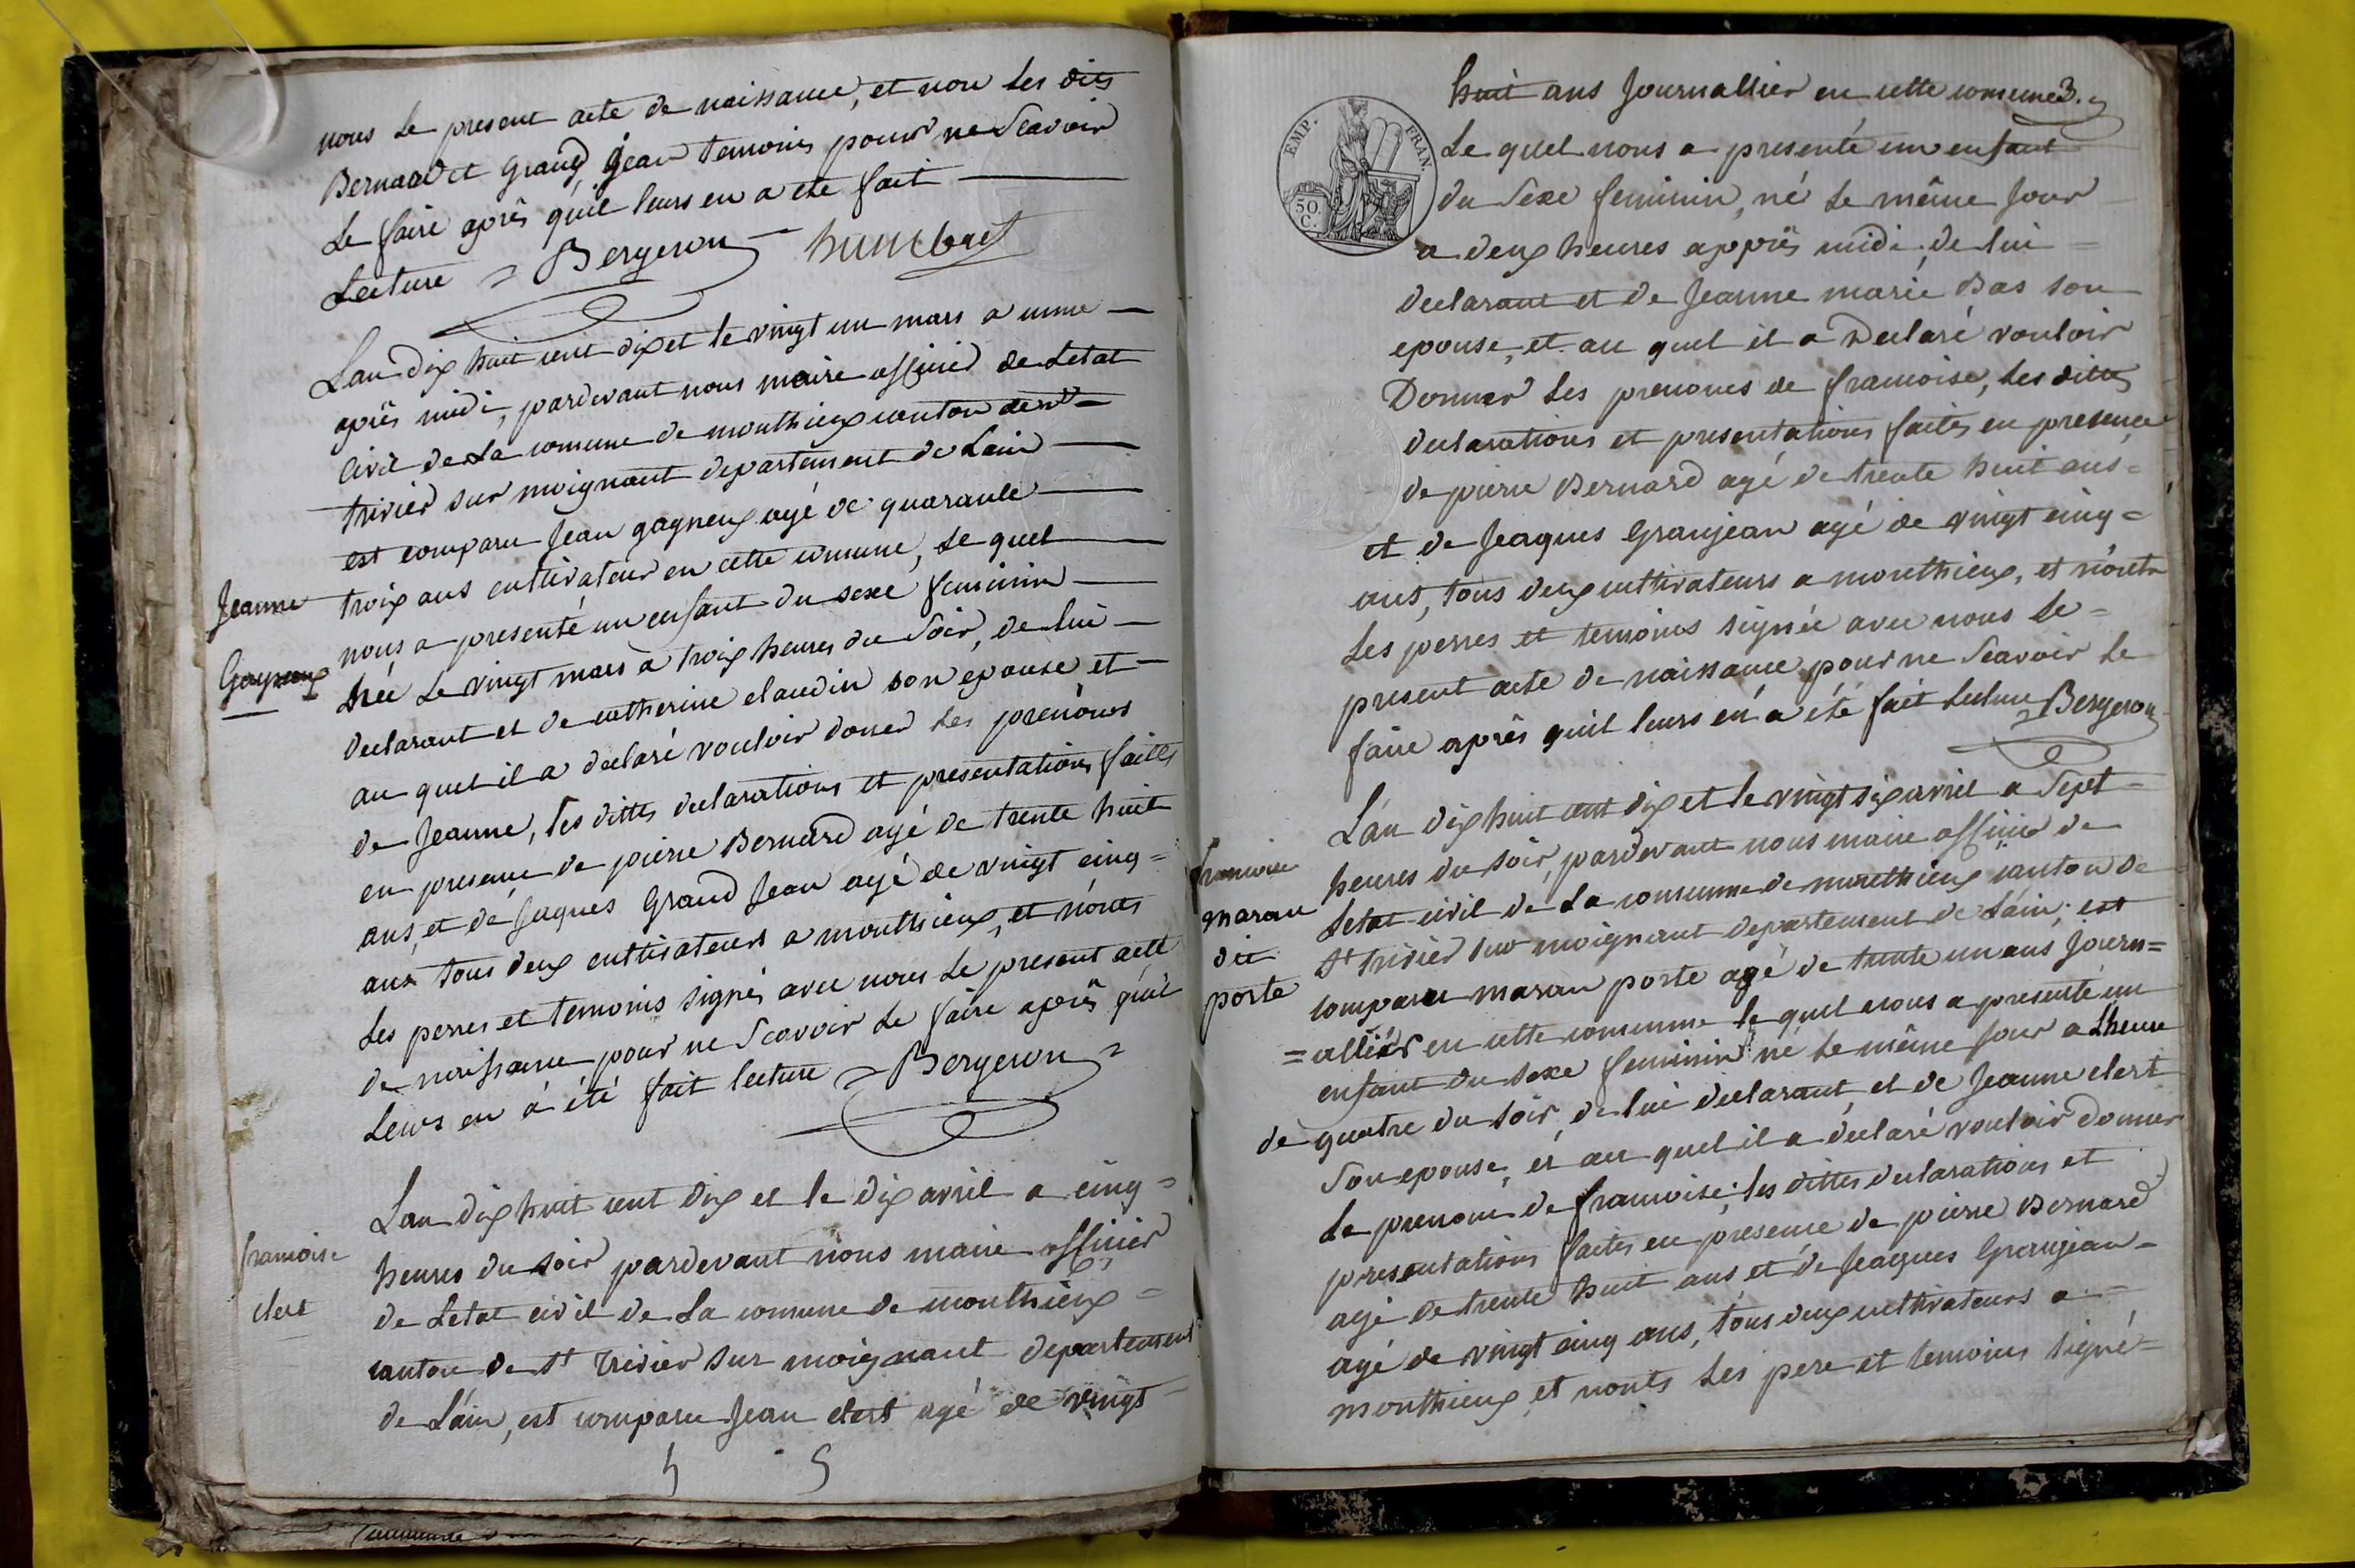 nous Le present acte de naissance, et non Les dits
Bernard et Grand Jean temoins pour ne Scavoir
Le faire après quil leurs en a eté fait
Lecture = Bergeron humbert
Lan dix huit cent dix et le vingt un mars a unne
après midi, pardevant nous maire officier de Letat
Civil de La comune de monthieux canton de St
trivier sur moignant departement de Lain
est comparu Jean gagneux agé de quarante
trois ans cultivateur en cette comune, Le quel
Jeanne
Gagneux
nous a presenté un enfant du sexe feminin
née Le vingt mars a trois heures du Soir, de lui
declarant et de catherine claudin son epouse et
au quel il a declaré vouloir doner Les prenoms
de Jeanne, les dittes declarations et presentations faittes
en presence de pierre Bernard agé de trente huit
ans, et de Jaques Grand Jean agé de vingt cinq =
ans tous deux cultivateurs a monthieux, et nonts
Les perres et temoins signés avec nous Le present acte
de naissance pour ne Scavoir Le faire après quil
Leurs en a été fait lecture = Bergeron =
Lan dix huit cent dix et le dix avril a cinq =
francoise
clert
heures du soir pardevant nous maire officier
de Letat civil de La comune de monthieux =
canton de St trivier sur moignant departement
de Láin, est comparu Jean clert agé de vingt
huit ans Journallier en cette comune 3.
EMP. FRAN.
50. C.
Le quel nous a presenté un enfant
du Sexe feminin, né Le même Jour
a deux heures après midi, de lui =
declarant et de Jeanne marie Bas son
epouse, et au quel il a Declaré vouloir
Donner Les prenoms de francoise, Les dittes
declarations et presentations faites en presence
de pierre Bernard agé de trente huit ans =
et de Jeaques Granjean agé de vingt cinq =
ans, tous deux cultivateurs a monthieux, et nonts
Les perres et temoins signée avec nous Le =
present acte de naissance pour ne Scavoir Le
faire après quil leurs en a été fait Lecture = Bergeron
L'an dix huit cent dix et le vingt six avril a Sept =
francoise
maran
dit
porte
heures du soir, pardevant nous maire officier de
Letat civil de La comumne de monthieux canton de
St trivier sur moignant departement de Láin, est
comparu maran porte agé de trente un ans Journ=
=allier en cette comumne le quel nous a presenté un
enfant du sexe feminin né Le même Jour a Lheure
de quatre du soir, de lui declarant, et de Jeanne clert
Son epouse, et au quel il a declaré vouloir donner
Le prenom de francoise; les dittes declarations et
presentations faites en presence de pierre Bernard
agé de trente huit ans et de Jeaques Granjean =
agé de vingt cinq ans, tous deux cultivateurs a =
monthieux et nonts Les pere et temoins signé =